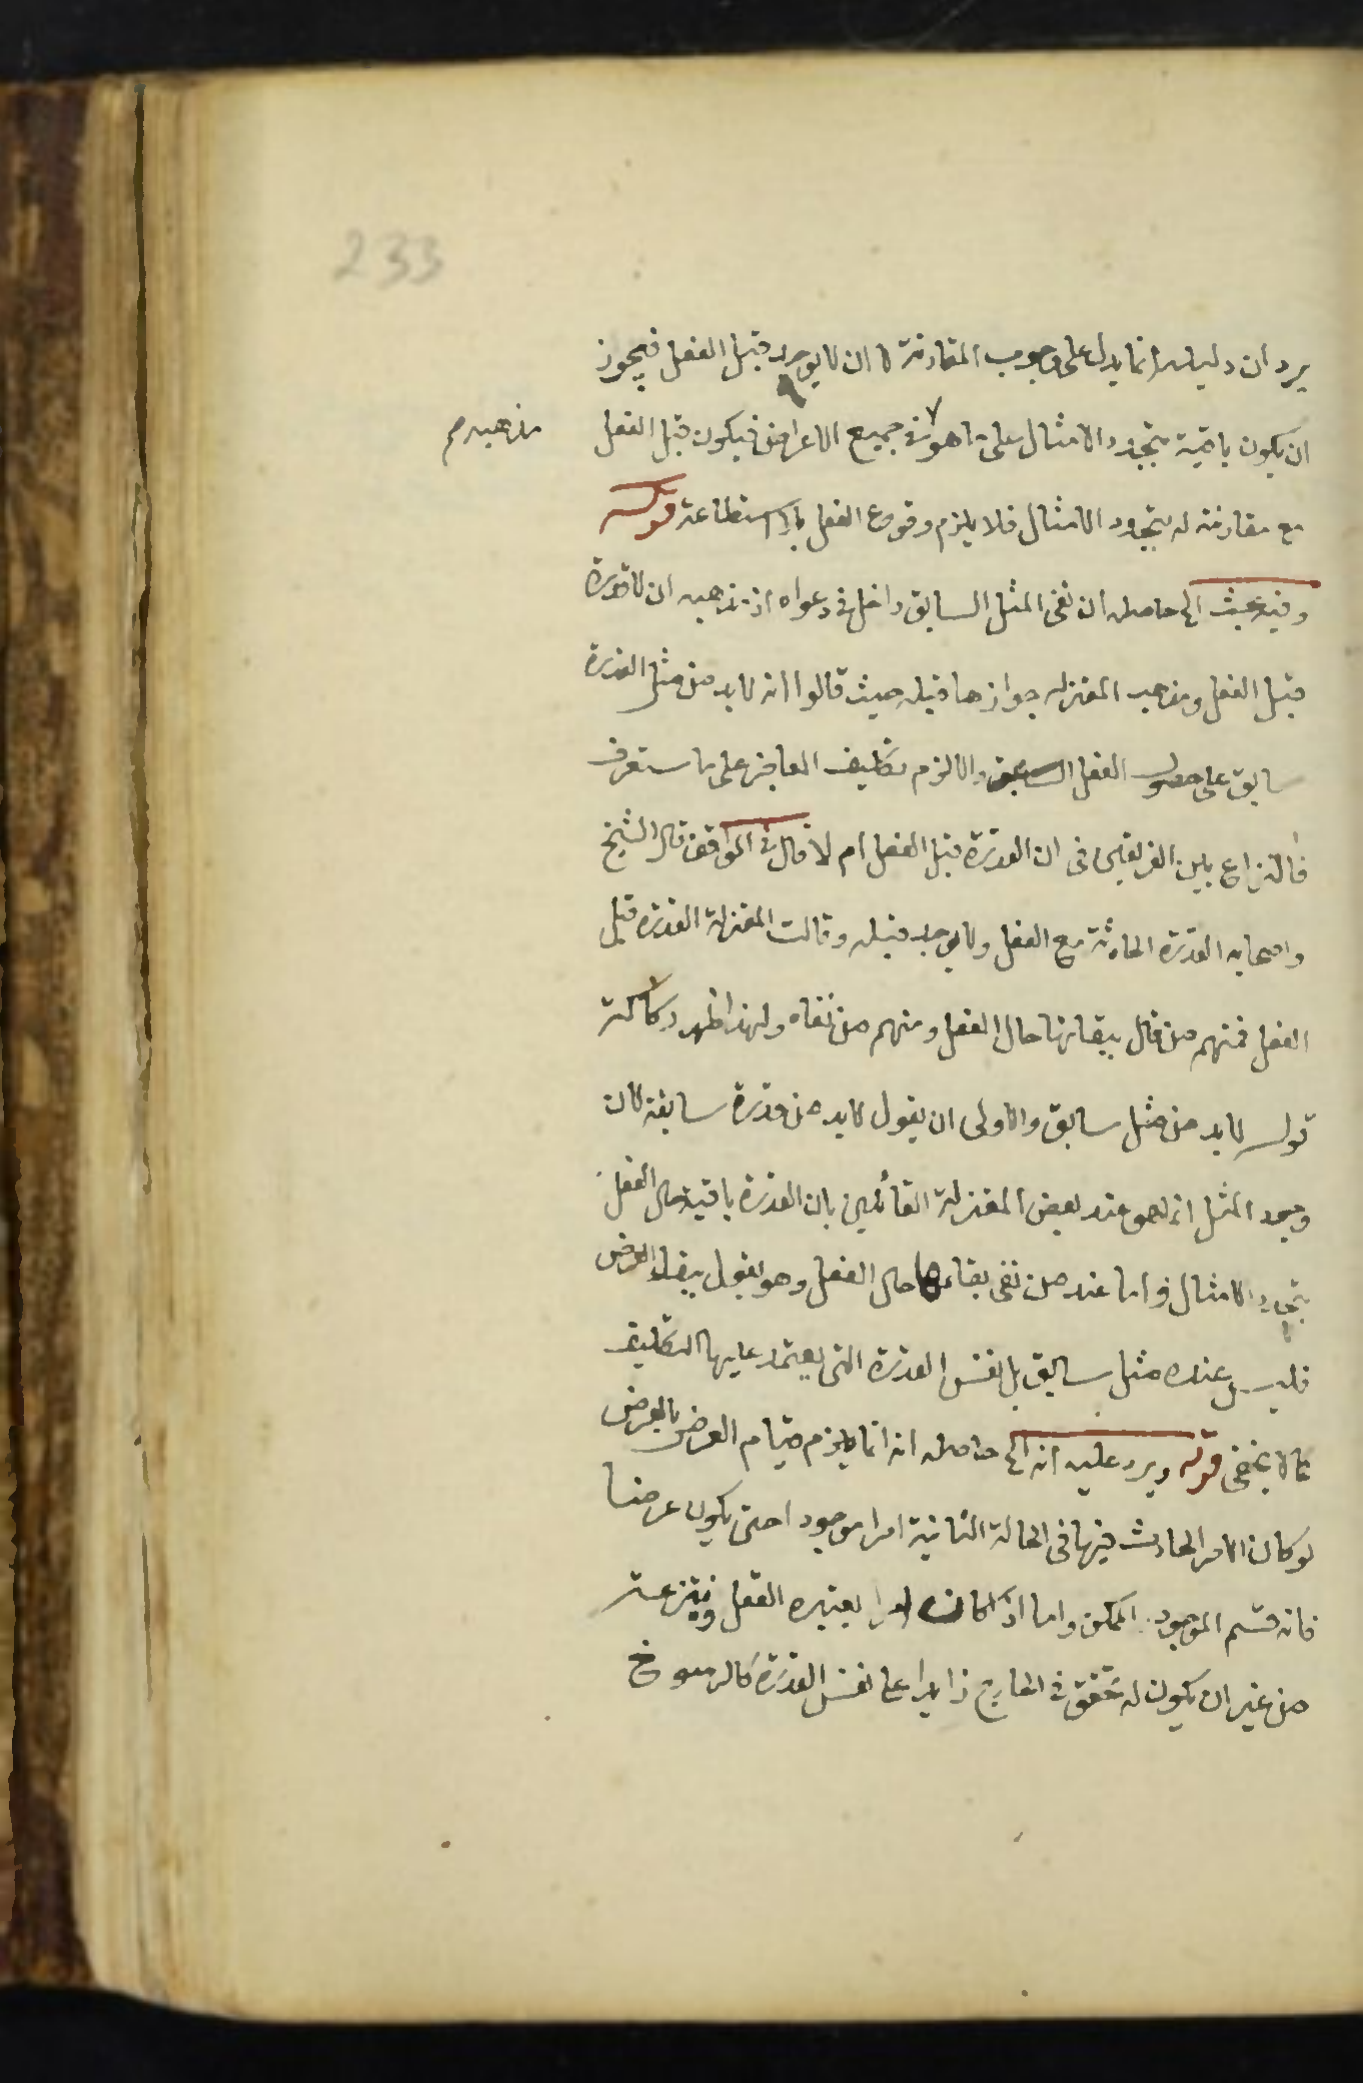 233
يرد ان دليله انما يدل على وجوب المقارنة لا ان لا يوجد قبل الفعل فيجوز
ان يكون باقية بتجدد الامثال على ما هو في جميع الاعراض فيكون قبل الفعل
مذهبهم
مع مقارنته له بتجدد الامثال فلا يلزم وقوع الفعل بلا استطاعة قوله
وفيه بحث الخ حاصله ان نفى المثل السابق داخل في دعواه اذ مذهبه ان لا قدرة
قبل الفعل ومذهب المعتزلة جوازها قبله حيث قالوا انه لا بد من مثل القدرة
سابق على حصول الفعل والا لزم تكليف العاجز على ما ستعرف
فالنزاع بين الفريقين في ان القدرة قبل الفعل ام لا قال في المواقف قال الشيخ
واصحابه القدرة الحادثة مع الفعل ولا يوجد قبله وقالت المعتزلة القدرة قبل
الفعل فمنهم من قال ببقائها حال الفعل ومنهم من نفاه ولهذا ظهر ركاكة
قوله لا بد من مثل سابق والاولى ان يقول لا بد من قدرة سابقة لان
وجود المثل انما هو عند بعض المعتزلة القائلين بان القدرة باقية حال الفعل
بتجدد الامثال واما عند من نفى بقاءها حال الفعل وهو يقول ببقاء العرض
فليس عنده مثل سابق بل نفس القدرة التي يعتمد عليها التكليف
كما لا يخفى قوله ويرد عليه انه الخ حاصله انه انما يلزم قيام العرض بالعرض
لو كان الامر الحادث فيها في الحالة الثانية امرا موجودا حتى يكون عرضا
فانه قسم الموجود الممكن واما اذا كان امرا يعتبره العقل وينتزعه
من غير ان يكون له تحقق في الخارج زايدا على نفس القدرة كالرسوخ